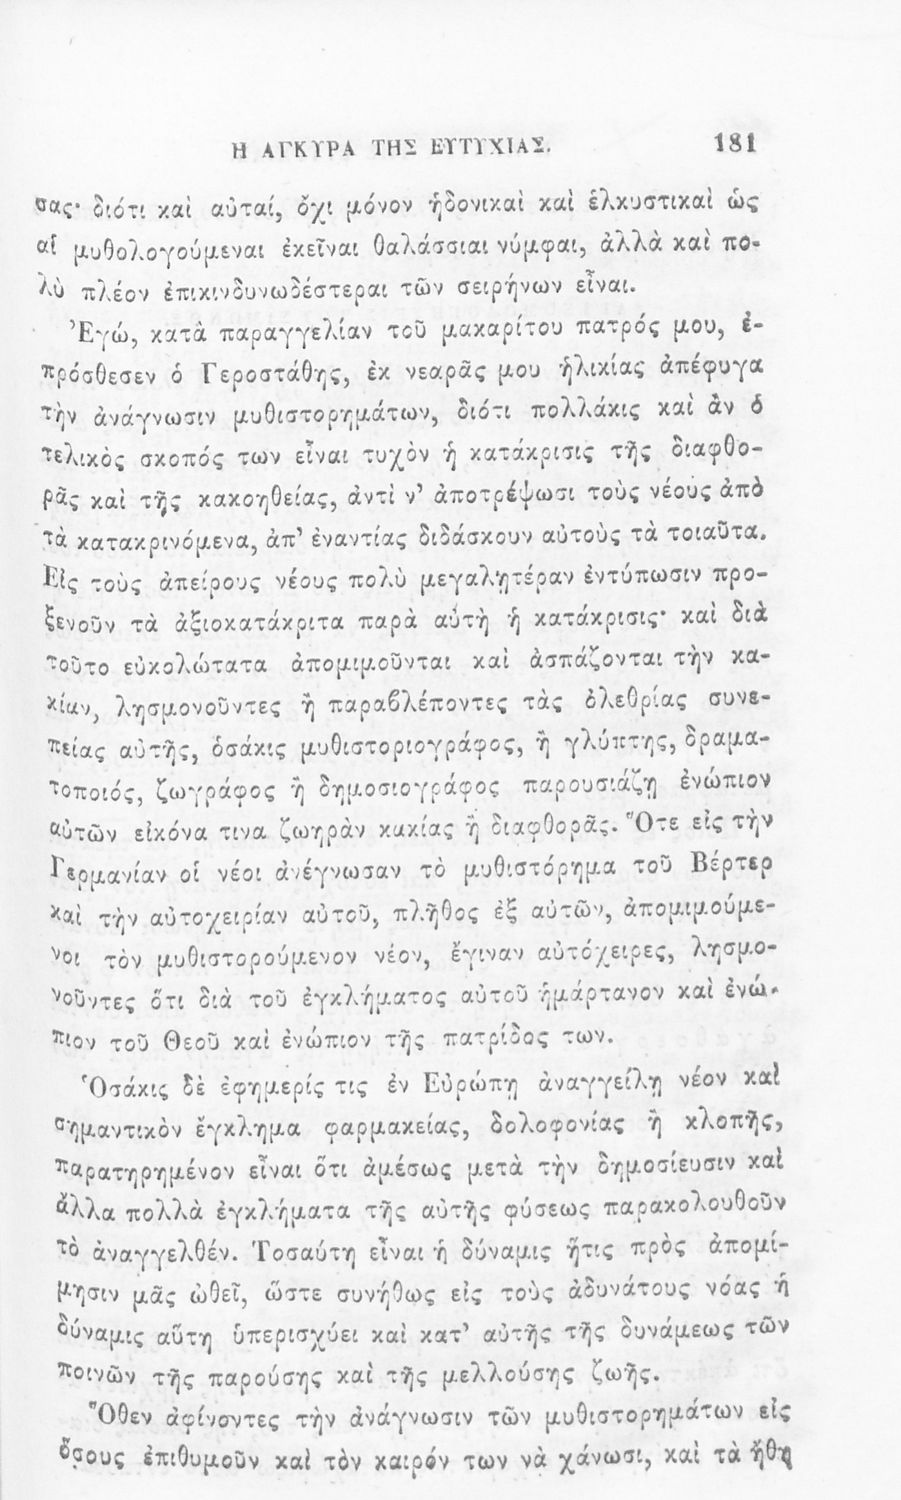 Η ΑΓΚΥΡΑ ΤΗΣ ΕΥΤΥΧΙΑΣ. 181
σας· διότι καὶ αὐταί, ὄχι μόνον ἡδονικαὶ καὶ ἑλκυστικαὶ ὡς
αἱ μυθολογούμεναι ἐκεῖναι θαλάσσιαι νύμφαι, ἀλλὰ καὶ πο-
λὺ πλέον ἐπικινδυνωδέστεραι τῶν σειρήνων εἶναι.
Ἐγώ, κατὰ παραγγελίαν τοῦ μακαρίτου πατρός μου, ἐ-
πρόσθεσεν ὁ Γεροστάθης, ἐκ νεαρᾶς μου ἡλικίας ἀπέφυγα
τὴν ἀνάγνωσιν μυθιστορημάτων, διότι πολλάκις καὶ ἂν ὁ
τελικὸς σκοπός των εἶναι τυχὸν ἡ κατάκρισις τῆς διαφθο-
ρᾶς καὶ τῆς κακοηθείας, ἀντὶ ν' ἀποτρέψωσι τοὺς νέους ἀπὸ
τὰ κατακρινόμενα, ἀπ' ἐναντίας διδάσκουν αὐτοὺς τὰ τοιαῦτα.
Εἰς τοὺς ἀπείρους νέους πολὺ μεγαλητέραν ἐντύπωσιν προ-
ξενοῦν τὰ ἀξιοκατάκριτα παρὰ αὐτὴ ἡ κατάκρισις· καὶ διὰ
τοῦτο εὐκολώτατα ἀπομιμοῦνται καὶ ἀσπάζονται τὴν κα-
κίαν, λησμονοῦντες ἢ παραβλέποντες τὰς ὀλεθρίας συνε-
πείας αὐτῆς, ὁσάκις μυθιστοριογράφος, ἢ γλύπτης, δραμα-
τοποιός, ζωγράφος ἢ δημοσιογράφος παρουσιάζῃ ἐνώπιον
αὐτῶν εἰκόνα τινα ζωηρὰν κακίας ἢ διαφθορᾶς. Ὅτε εἰς τὴν
Γερμανίαν οἱ νέοι ἀνέγνωσαν τὸ μυθιστόρημα τοῦ Βέρτερ
καὶ τὴν αὐτοχειρίαν αὐτοῦ, πλῆθος ἐξ αὐτῶν, ἀπομιμούμε-
νοι τὸν μυθιστορούμενον νέον, ἔγιναν αὐτόχειρες, λησμο-
νοῦντες ὅτι διὰ τοῦ ἐγκλήματος αὐτοῦ ἡμάρτανον καὶ ἐνώ-
πιον τοῦ Θεοῦ καὶ ἐνώπιον τῆς πατρίδος των.
Ὁσάκις δὲ ἐφημερίς τις ἐν Εὐρώπῃ ἀναγγείλῃ νέον καὶ
σημαντικὸν ἔγκλημα φαρμακείας, δολοφονίας ἢ κλοπῆς,
παρατηρημένον εἶναι ὅτι ἀμέσως μετὰ τὴν δημοσίευσιν καὶ
ἄλλα πολλὰ ἐγκλήματα τῆς αὐτῆς φύσεως παρακολουθοῦν
τὸ ἀναγγελθέν. Τοσαύτη εἶναι ἡ δύναμις ἥτις πρὸς ἀπομί-
μησιν μᾶς ὠθεῖ, ὥστε συνήθως εἰς τοὺς ἀδυνάτους νόας ἡ
δύναμις αὕτη ὑπερισχύει καὶ κατ' αὐτῆς τῆς δυνάμεως τῶν
ποινῶν τῆς παρούσης καὶ τῆς μελλούσης ζωῆς.
Ὅθεν ἀφίνοντες τὴν ἀνάγνωσιν τῶν μυθιστορημάτων εἰς
ὅσους ἐπιθυμοῦν καὶ τὸν καιρόν των νὰ χάνωσι, καὶ τὰ ἤθη